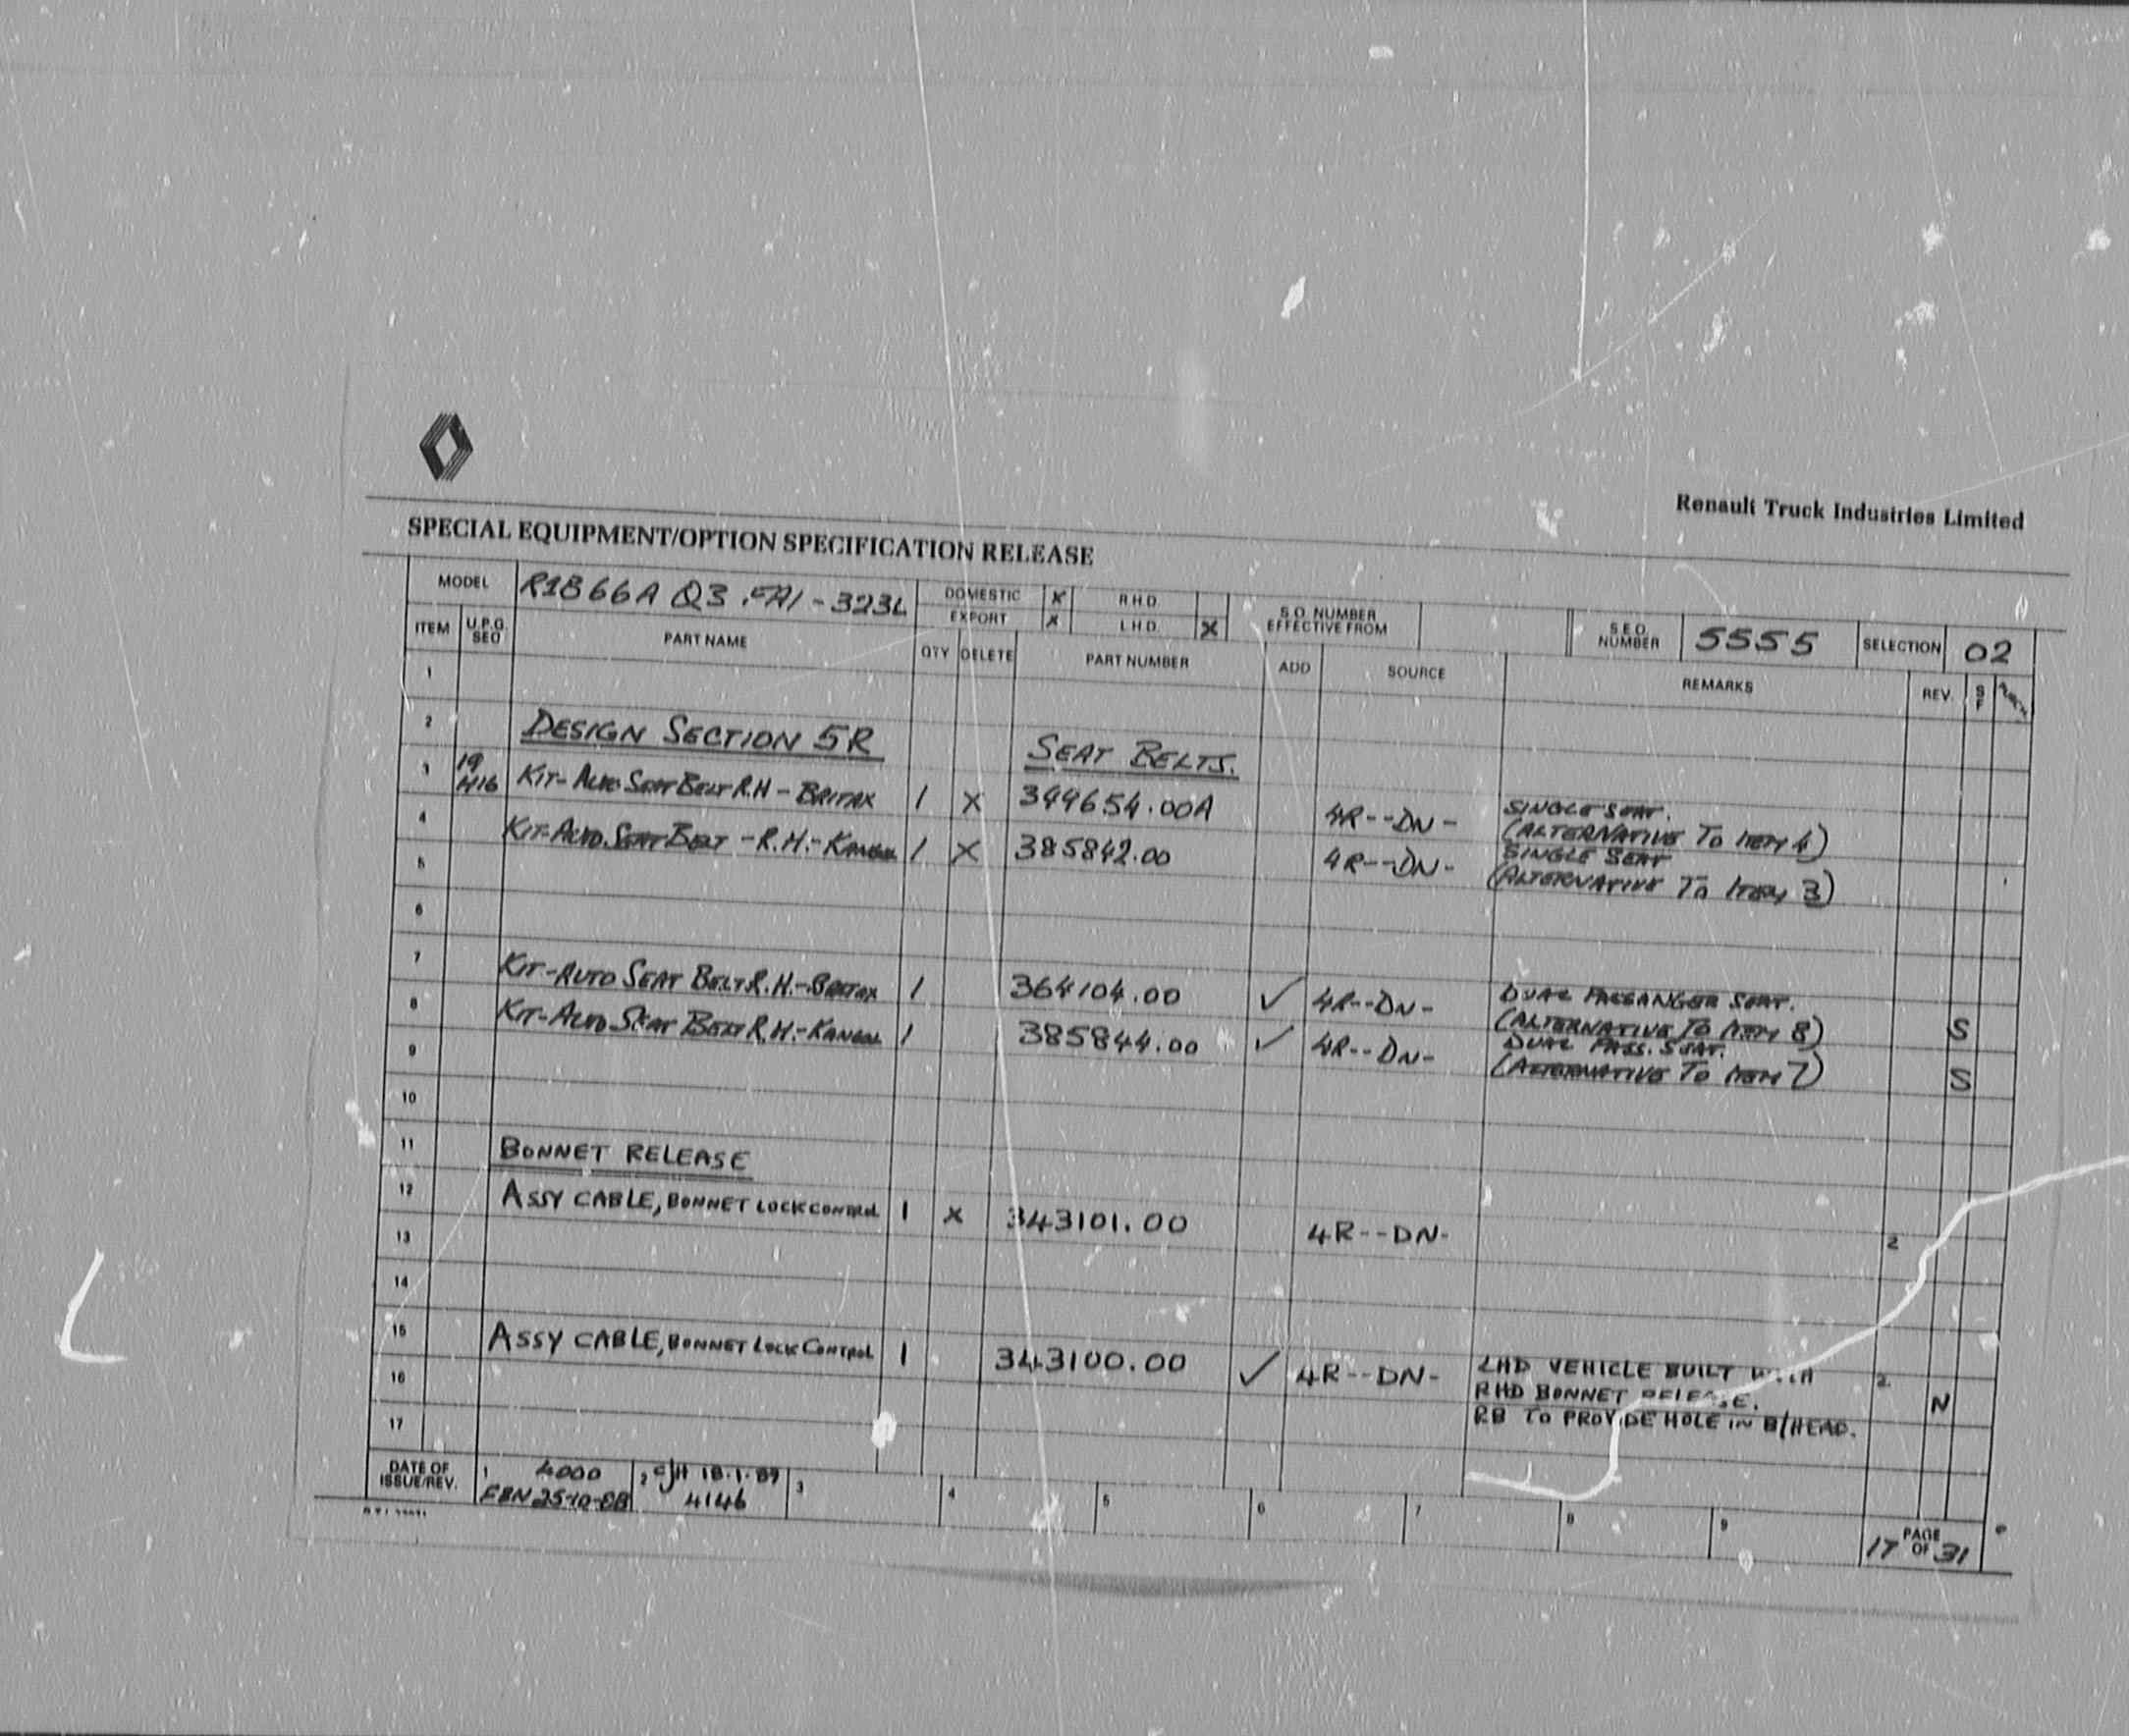 Renault Truck Industries Limited
SPECIAL EQUIPMENT/OPTION SPECIFICATION RELEASE
MODEL R1866A Q3 - 323L DOMESTIC X R.H.D. S.O. NUMBER EFFECTIVE FROM S.E.O. NUMBER 5555 SELECTION 02
EXPORT X L.H.D. X
ITEM U.P.G. SEQ PART NAME QTY DELETE PART NUMBER ADD SOURCE REMARKS REV. S F
1
2 DESIGN SECTION 5R SEAT BELTS.
3 19 H16 KIT- AUTO SEAT BELT R.H - BRITAX 1 X 399654.00A 4R--DN- SINGLE SEAT.
(ALTERNATIVE TO ITEM 4)
4 KIT-AUTO.SEAT BELT -R.H.- KANGOL 1 X 385842.00 4R--DN- SINGLE SEAT
5 (ALTERNATIVE TO ITEM 3)
6
7 KIT-AUTO SEAT BELT R.H.-BRITAX 1 364104.00 ✓ 4R--DN- DUAL PASSANGER SEAT.
(ALTERNATIVE TO ITEM 8) S
8 KIT-AUTO SEAT BELT R.H.-KANGOL 1 385844.00 ✓ 4R--DN- DUAL PASS. SEAT.
9 (ALTERNATIVE TO ITEM 7) S
10
11 BONNET RELEASE
12 ASSY CABLE, BONNET LOCK CONTROL 1 X 343101.00 4R--DN- 2
13
14
15 ASSY CABLE, BONNET LOCK CONTROL 1 343100.00 ✓ 4R--DN- LHD VEHICLE BUILT WITH 2
16 RHD BONNET RELEASE. N
17 RB TO PROVIDE HOLE IN B/HEAD.
DATE OF ISSUE/REV. 1 4000 2 CJH 18.1.89 3 4 5 6 7 8 9 PAGE
EBN 25-10-88 4146 17 OF 31